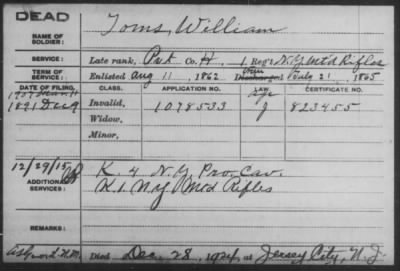 DEAD
NAME OF SOLDIER: Toms, William
SERVICE: Late rank, Pvt Co. H, 1 Reg't N.Y. Mtd Rifles
TERM OF SERVICE: Enlisted Aug 11, 1862 Discharged July 21, 1865
DATE OF FILING. CLASS. APPLICATION NO. LAW. CERTIFICATE NO.
1891 Aug Invalid, 1078533 J 823455
Widow,
Minor,
12/29/15
ADDITIONAL SERVICES: K. 4 N.Y. Pro. Cav.
H. 1 N.Y. Mtd Rifles
REMARKS:
Died Dec. 28, 1924, at Jersey City, N.J.